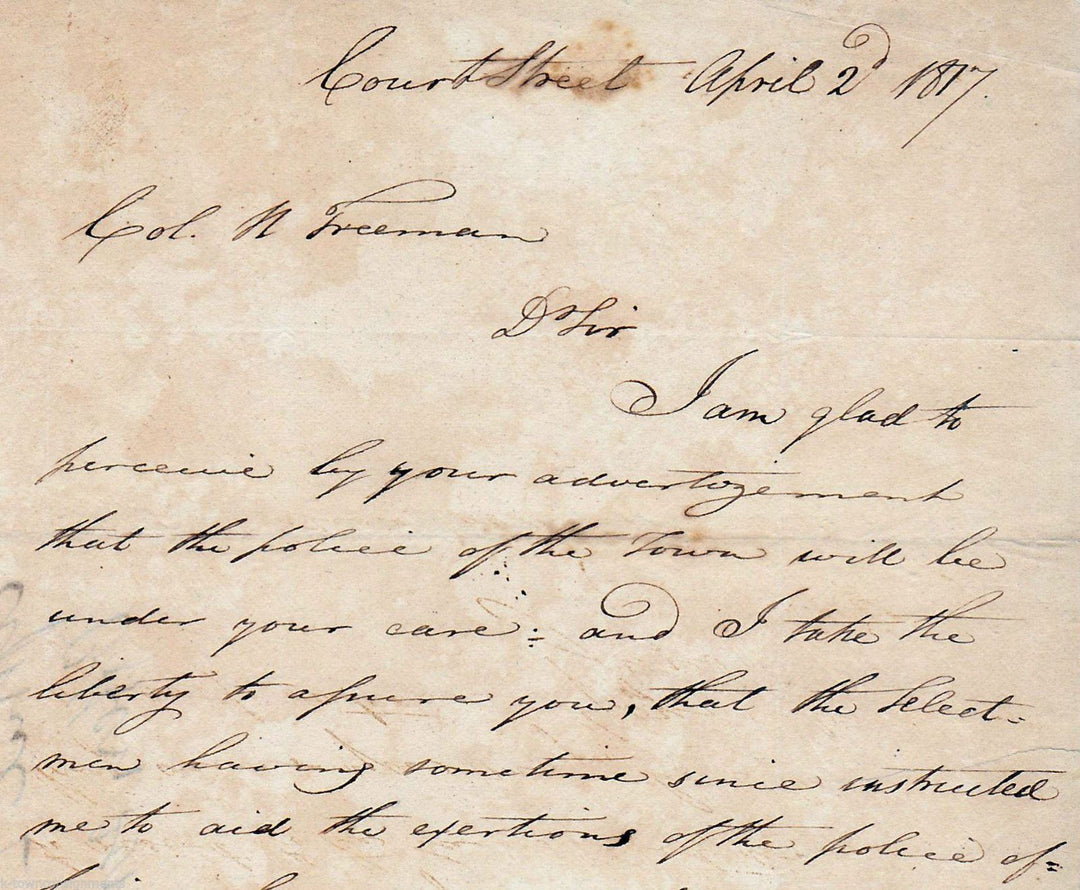 Court Street April 2d 1817.
Col. N Freeman
Dr Sir
I am glad to
perceive by your advertizement
that the police of the Town will be
under your care: and I take the
liberty to assure you, that the Select=
men having sometime since instructed
me to aid the exertions of the police of=